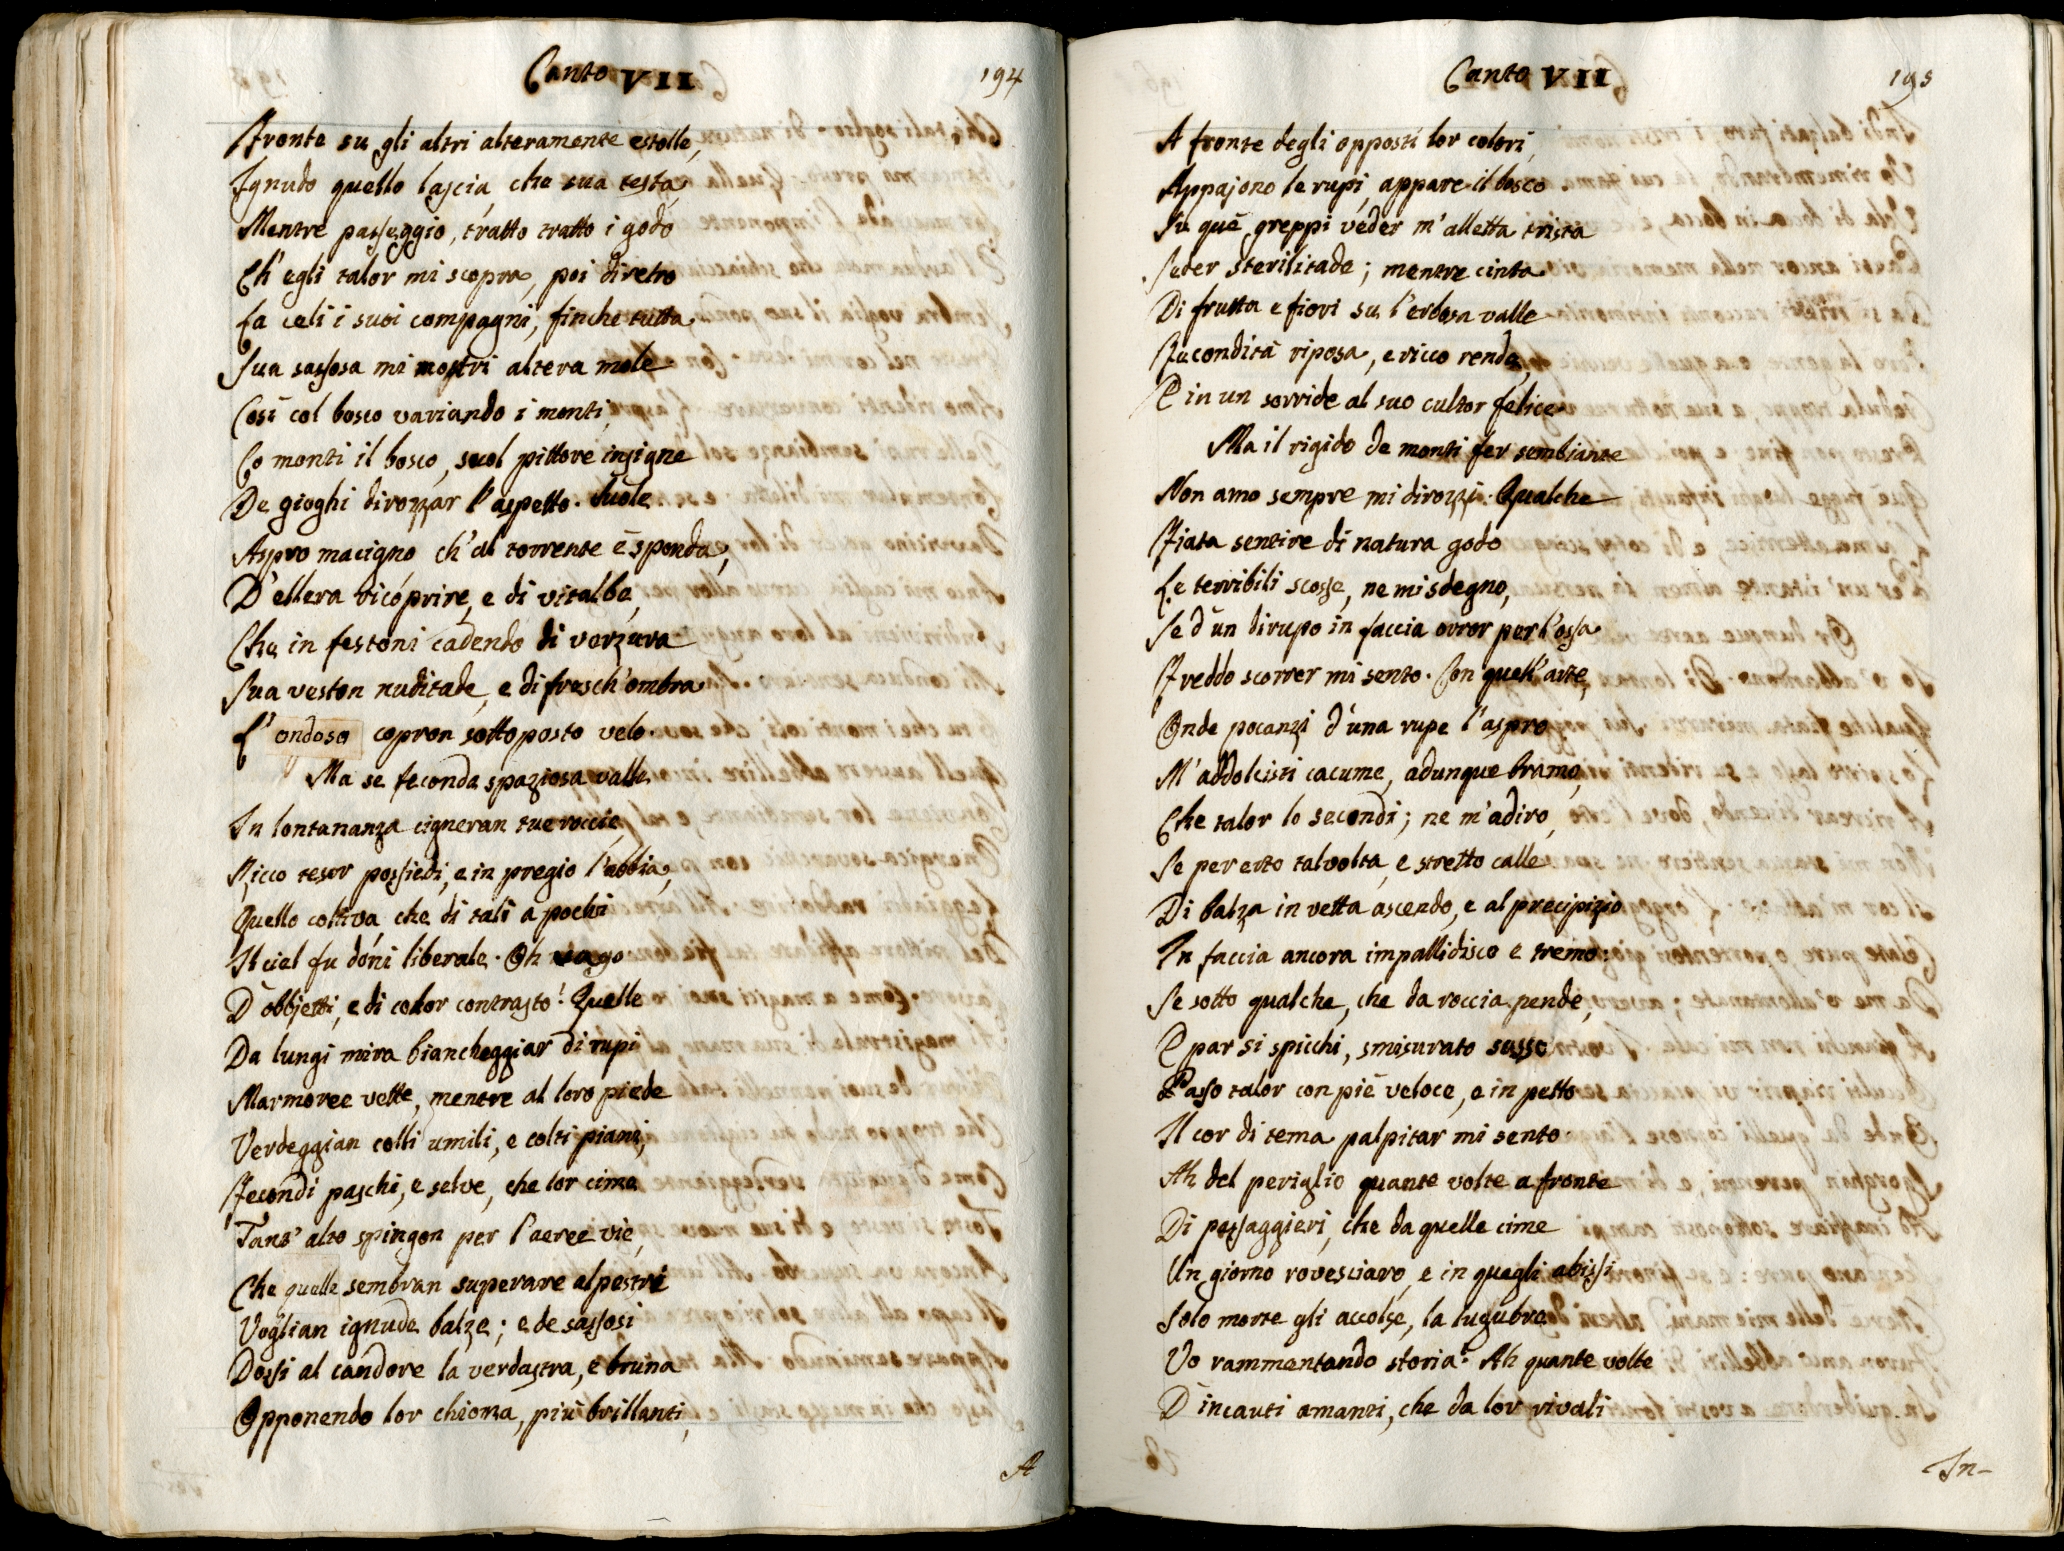 Canto VII 194
Fronte su gli altri alteramente estolle,
Ignudo quello lascia, che sua testa
Mentre passeggio, tratto tratto i godo
Ch' egli talor mi scopra, poi diretro
La celi i suoi compagni, finche tutta
Sua sassosa mi mostri altera mole
Così col bosco variando i monti,
Co monti il bosco, suol pittore insigne
De gioghi dirozzar l'aspetto. Suole
Aspro macigno ch' al torrente è sponda,
D'ellera ricoprire, e di vitalba,
Che in festoni cadendo di verzura
Sua veston nuditade, e di fresch'ombra
L' ondoso copron sottoposto velo.
Ma se feconda spaziosa valle
In lontananza cigneran tue roccie,
Ricco tesor possiedi, e in pregio l'abbia,
Quello coltiva, che di tali a pochi
Il ciel fu doni liberale. Oh vago
D'obbjetti, e di color contrasto! Quelle
Da lungi mira biancheggiar di rupi
Marmoree vette, mentre al loro piede
Verdeggian colli umili, e colti piani,
Fecondi paschi, e selve, che lor cime
Tant' alto spingon per l'aeree vie,
Che quelle sembran superare alpestri
Voglian ignude balze; e de sassosi
Dossi al candore la verdastra, e bruna
Opponendo lor chioma, più brillanti,
A
Canto VII 195
A fronte degli opposti lor colori,
Appajono le rupi, appare il bosco
Su què greppi veder m'alletta trista
Seder sterilitade; mentre cinta
Di frutta e fiori su l'erbosa valle
Fecondità riposa, e ricco rende,
E in un sorride al suo cultor felice
Ma il rigido de monti fer sembiante
Non amo sempre mi dirozzi. Qualche
Fiata sentire di natura godo
Le terribili scosse, ne mi sdegno,
Se d'un dirupo in faccia orror per l'ossa
Freddo scorrer mi sento. Con quell'arte,
Onde pocanzi d'una rupe l'aspro
M'addolcisti cacume, adunque bramo,
Che talor lo secondi; ne m'adiro,
Se per erto talvolta, e stretto calle
Di balza in vetta ascendo, e al precipizio
In faccia ancora impallidisco e tremo:
Se sotto qualche, che da roccia pende,
E par si spicchi, smisurato sasso
Passo talor con piè veloce, e in petto
Il cor di tema palpitar mi sento.
Ah del periglio quante volte a fronte
Di passaggieri, che da quelle cime
Un giorno rovesciaro, e in quegli abissi
Solo morte gli accolse, la lugubre
Vo rammentando storia! Ah quante volte
D'incauti amanti, che da lor rivali
In-